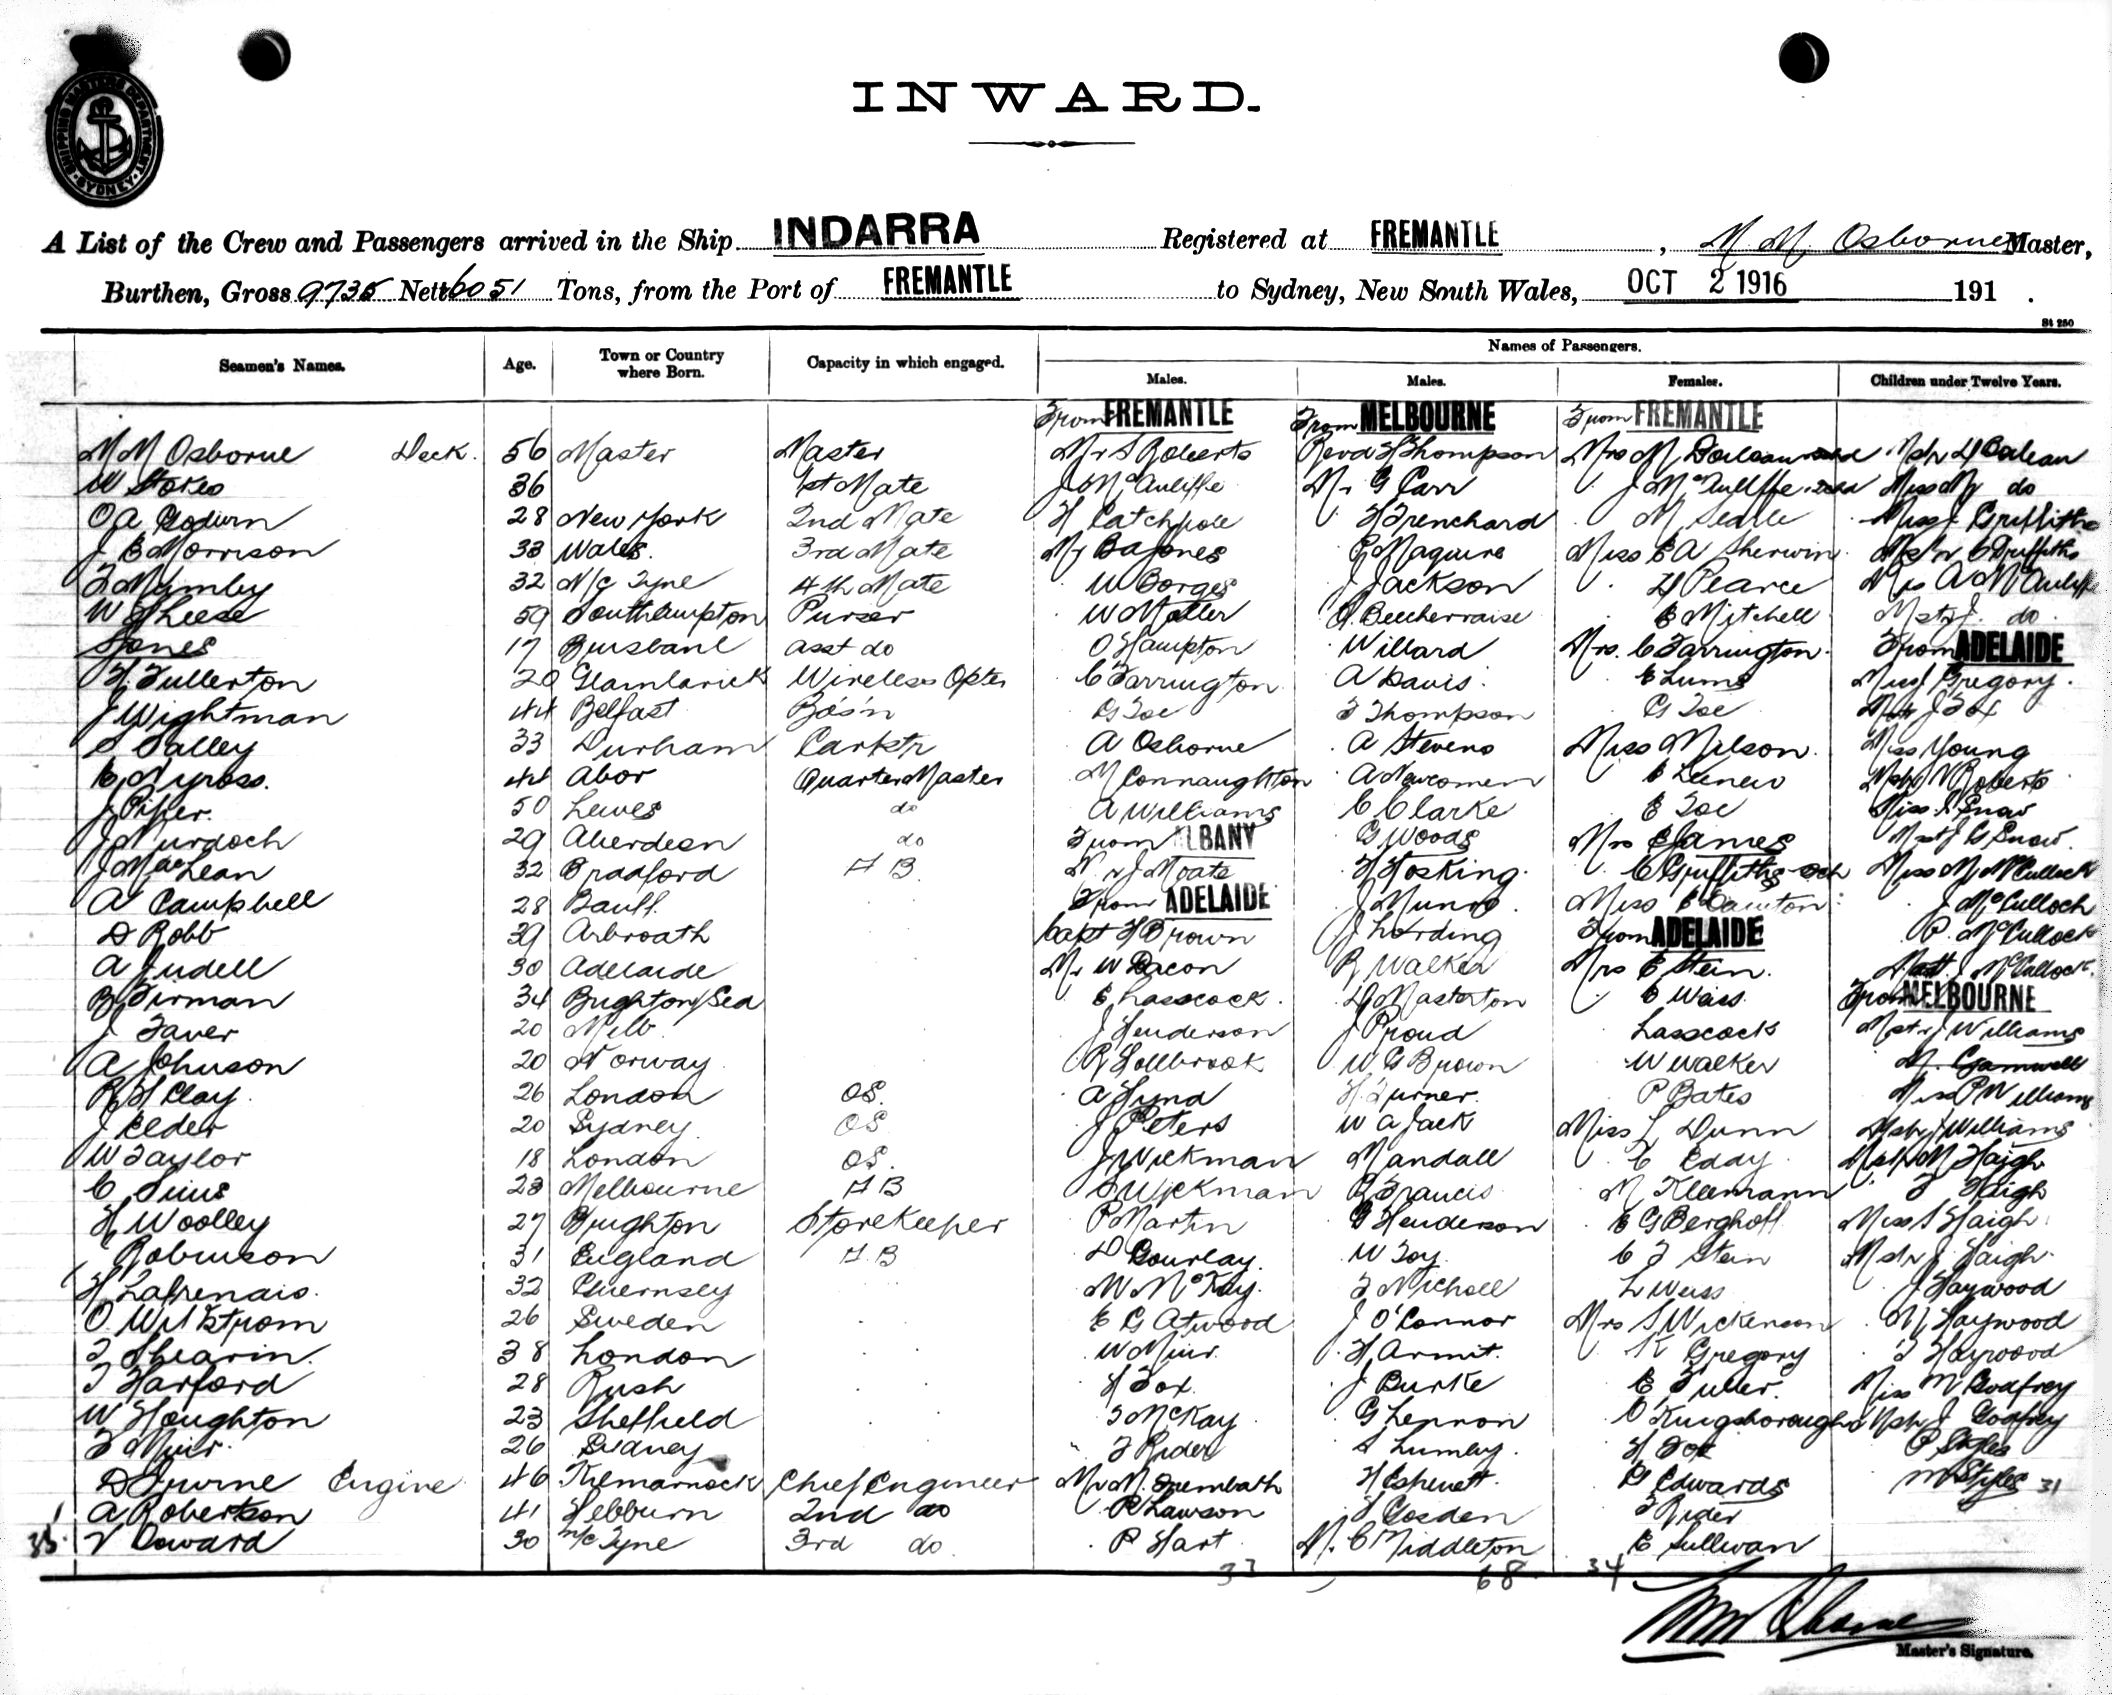 SHIPPING MASTERS DEPARTMENT
SYDNEY
INWARD.
A List of the Crew and Passengers arrived in the Ship INDARRA Registered at FREMANTLE, M. M. Osborne Master,
Burthen, Gross 9735 Nett 6051 Tons, from the Port of FREMANTLE to Sydney, New South Wales, OCT 2 1916 191 .
St 250
Seamen's Names. Age. Town or Country where Born. Capacity in which engaged. Names of Passengers.
Males. Males. Females. Children under Twelve Years.
From FREMANTLE From MELBOURNE From FREMANTLE
M M Osborne Deck. 56 Master Master Mr S Roberts Revd H Thompson Mrs M
W Stokes 36 1st Mate J McAuliffe Mr G Carr J McAuliffe Miss M do
O A 28 New York 2nd Mate H Catchpole H Trenchard M Searle Miss J Griffiths
J B Morrison 33 Wales. 3rd Mate Mr B A Jones G Maguire Miss E A Sherwin Mstr C Griffiths
32 N/C Tyne 4th Mate W Borges J Jackson H Pearce Miss A McAuliffe
W Sheese 59 Southampton Purser W Moller Beecherraise E Mitchell Mstr J. do.
Jones 17 Brisbane asst do O Hampton Willard Mrs. C Farrington. From ADELAIDE
H. Fullerton 20 Wireless Opter C Farrington A Davis. E Lums Miss J Gregory.
J Wightman 44 Belfast Bos'n G Zoe F Thompson G Zoe J Fox
S Calley 33 Durham Carptr A Osborne A Stevens Miss Wilson. Miss Young
44 Abor Quarter Master M Connaughton A Newcomen Mstr N Roberts
J Piper. 50 Lewes do A Williams C Clarke E Zoe Miss Snow
J Murdoch 29 Aberdeen do From ALBANY G Woods Mrs E James Mstr G Snow.
J MacLean 32 Bradford A B. Mr J Moate H Hosking. C Griffiths Miss M McCulloch
A Campbell 28 Banff. From ADELAIDE J Munro. Miss E J McCulloch
D Robb 39 Arbroath Capt H Brown J Harding From ADELAIDE P. McCulloch
A Judell 30 Adelaide Mr W Bacon R Walker Mrs E Stein. McCulloch.
B Firman 34 Brighton/Sea E Lasscock. D Masterton E Weiss. From MELBOURNE
J Taver 20 Melb. J Henderson J Proud Lasscock Mstr J Williams
A Johnson 20 Norway R Hollbrook W G Brown W Walker M. Gamwell
R H Clay. 26 London OS. A Hynd H. Turner. P Bates Miss P Williams
J Elder 20 Sydney. OS J Peters W A Jack Miss L Dunn Mstr J Williams
W Taylor 18 London OS. J Wickman Mandall E Eddy. Mstr M Haigh
C Sims 23 Melbourne A B S Wickman R Francis M Kleemann F Haigh
H Woolley 27 Brighton Storekeeper P Martin G Henderson E G Berghoff Miss S Haigh
Robinson 31 England A B D Gourlay. W Toy. C F Stein Mstr J. Haigh.
H Lafrenais. 32 Guernsey M McKay. F Nicholl L Weiss J Haywood
O. Wikstrom 26 Sweden E G Atwood J O'Connor Mrs S Wickenson M Haywood
T Shearin. 38 London W Muir. H Armit. K Gregory F Haywood
T Harford 28 Rush H Fox. J Burke E Fuller. Miss M Godfrey
W Houghton 23 Sheffield F McKay. G Lennon C Kingsborough Mstr J Godfrey
F Muir. 26 Sydney F Rider S Lumby. H Fox P Styles
D Irvine Engine 46 Kilmarnock Chief Engineer Mr M. Trembath H E Edwards M Styles 31
A Robertson 41 Hebburn 2nd do P Lawson H Gosden F Rider
35. V Coward 30 N/C Tyne 3rd do. P Hart M. C Middleton E Sullivan
33 68 34
Master's Signature.